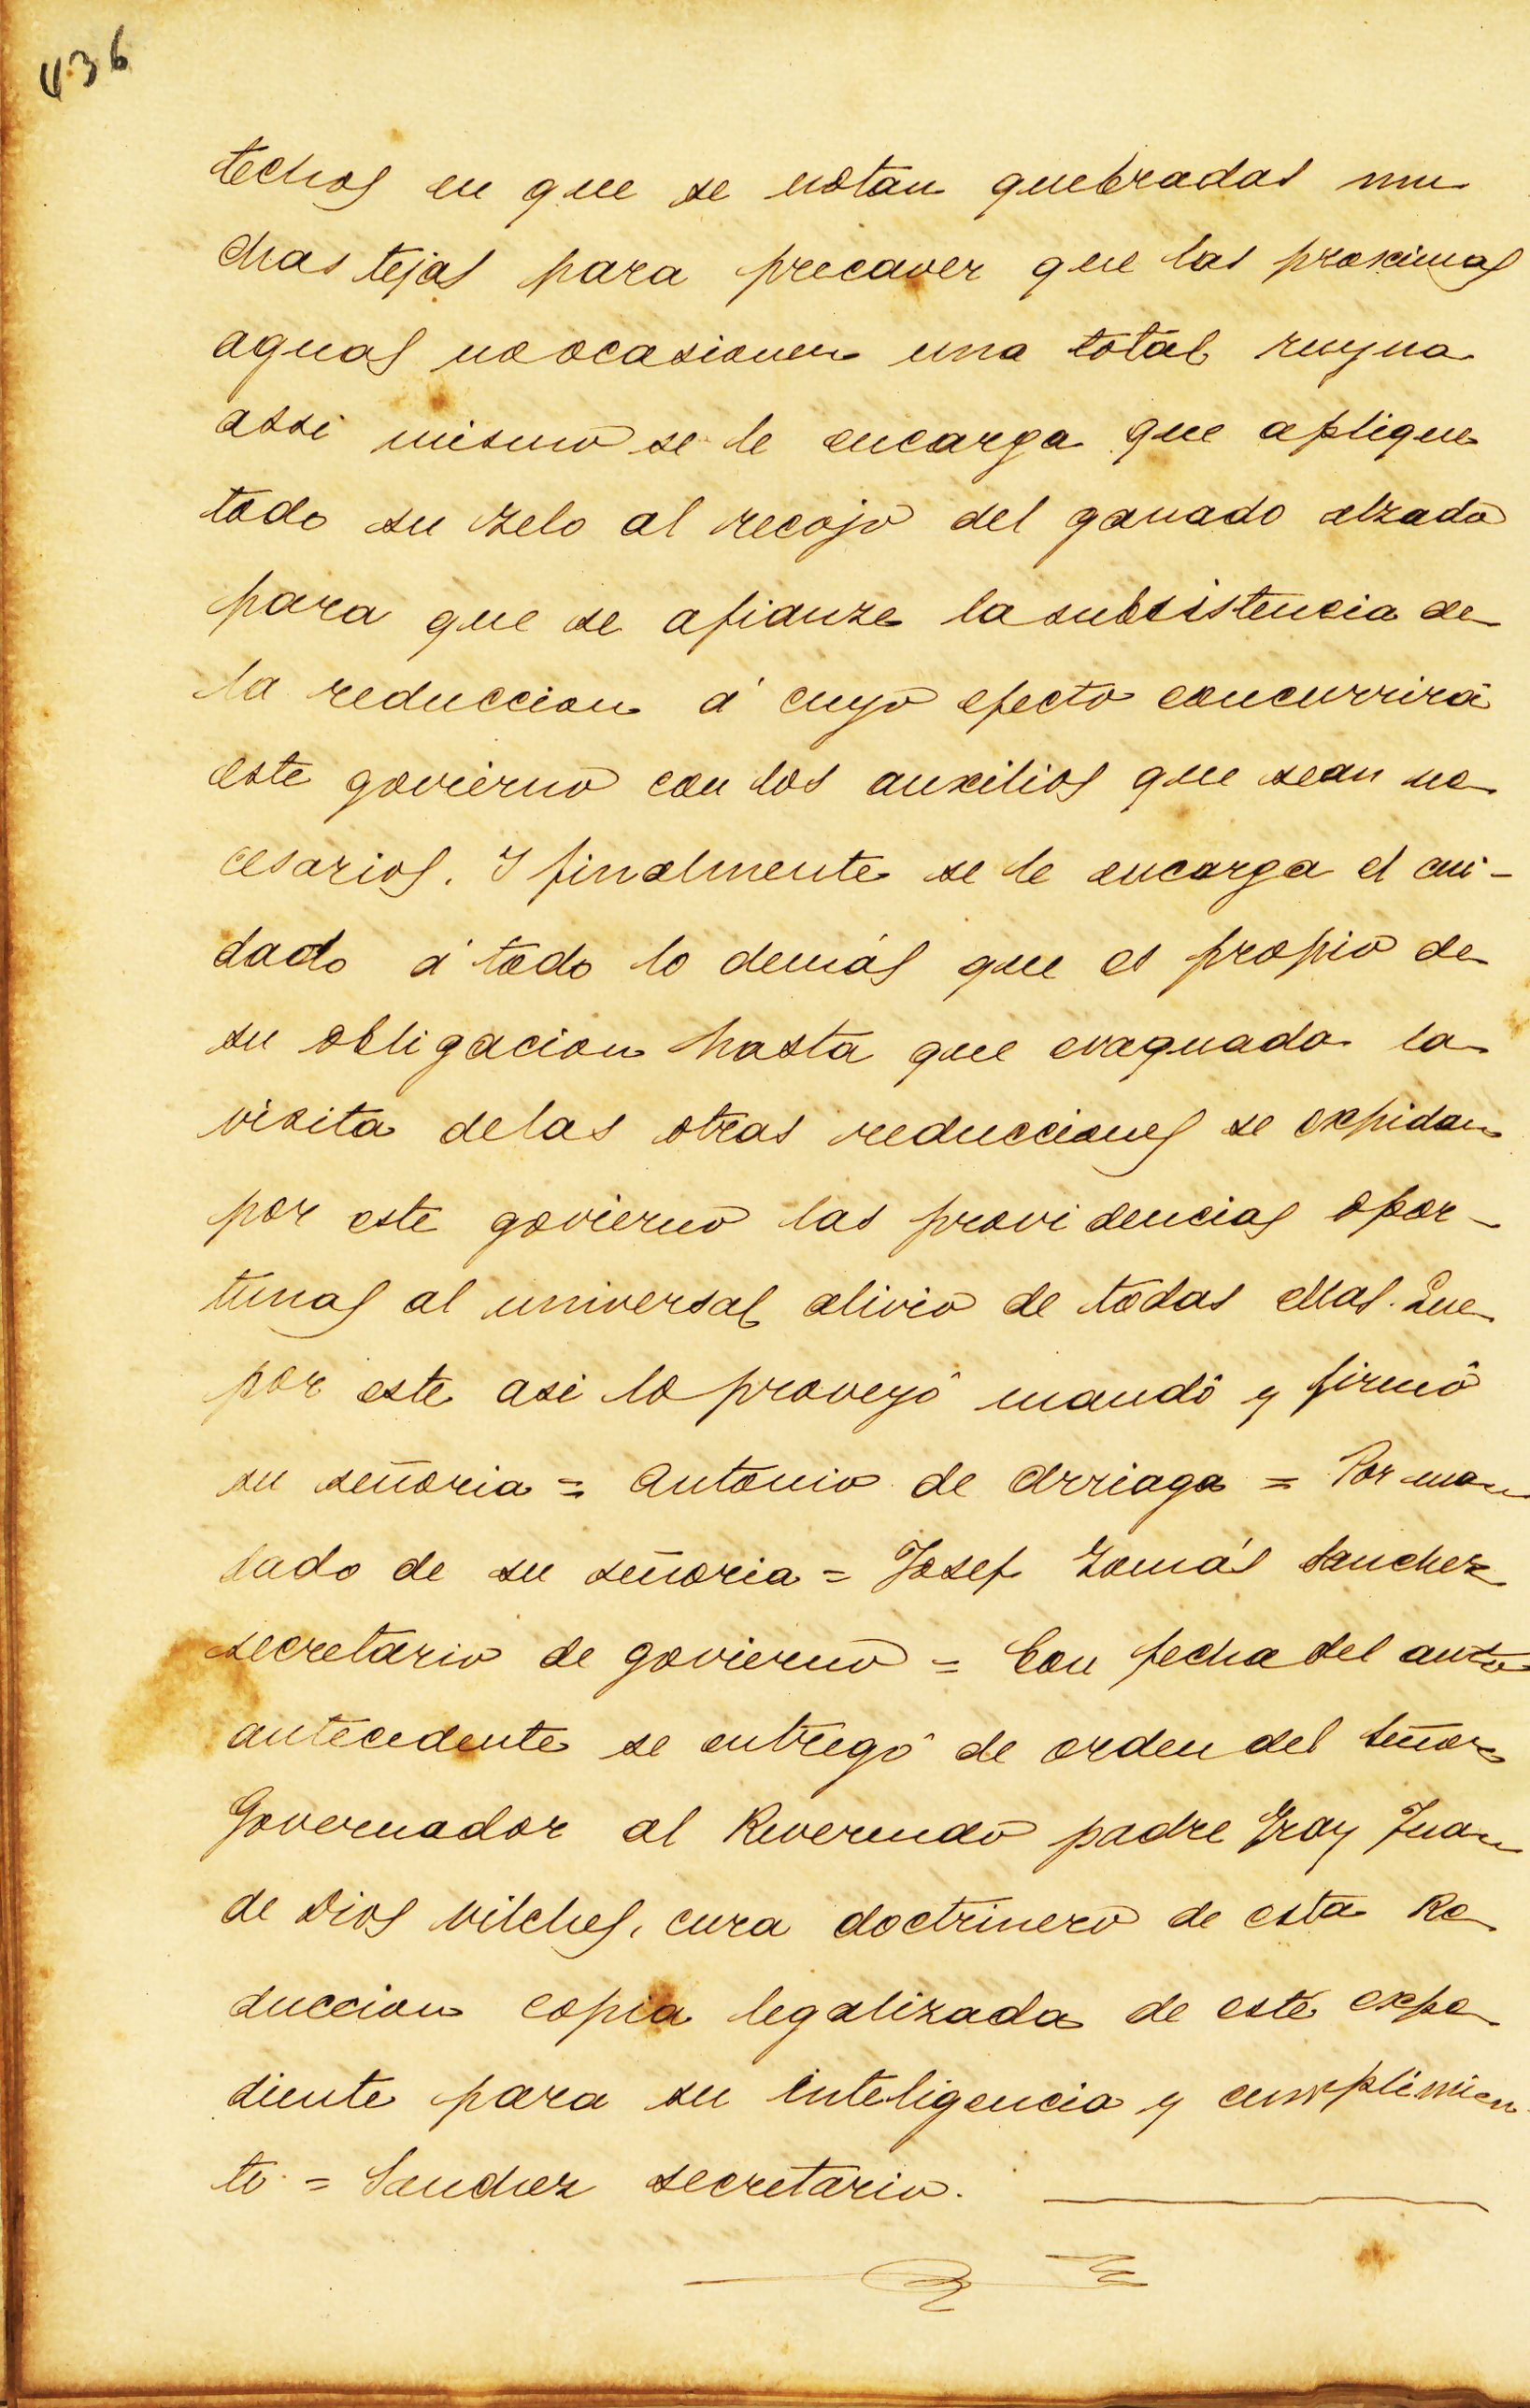 436
techos en que se notan quebradas mu
chas tejas para precaver que las proximas
aguas no ocasionen una total ruyna
assi mismo se le encarga que aplique
todo su zelo al recojo del ganado alzado
para que se afianze la subsistencia de
la reduccion á cuyo efecto concurrirá
este govierno con los auxilios que sean ne
cesarios. I finalmente se le encarga el cui-
dado á todo lo demás que es propio de
su obligacion hasta que evaquada la
visita de las otras reducciones se expidan
por este govierno las providencias opor-
tunas al universal alivio de todas ellas. Que
por este asi lo proveyó mandó y firmó
su señoria = Antonio de Arriaga = Por man
dado de su señoria = Josef Tomás Sanchez
secretario de govierno = Con fecha del auto
antecedente se entregó de orden del Señor
Governador al Reverendo padre Fray Juan
de Dios Vilches, cura doctrinero de esta Re
duccion copia legalizada de este expe
diente para su inteligencia y cumplimien
to = Sanchez secretario.